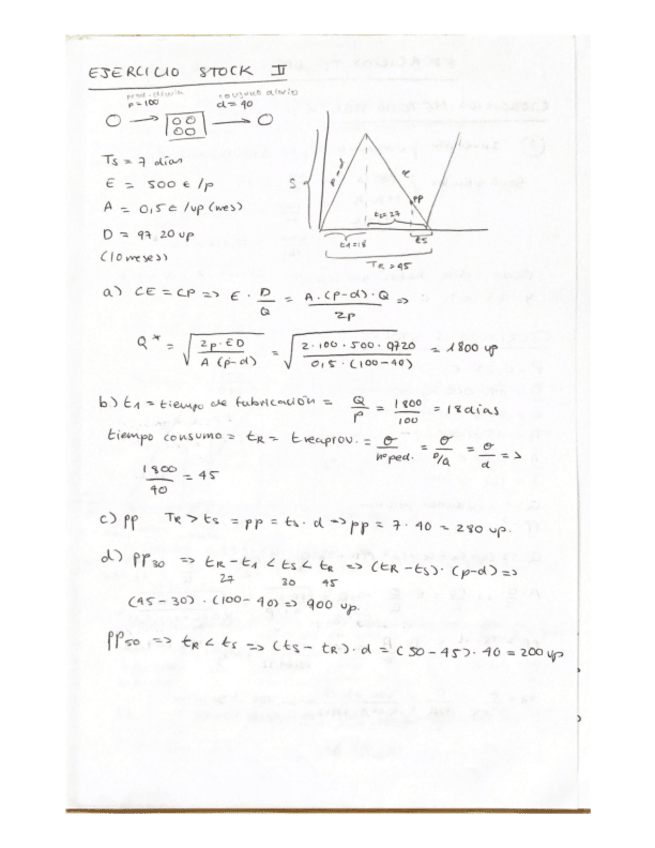 EJERCICIO STOCK II
prod. diaria consumo diario
p = 100 d = 40
Ts = 7 días
E = 500 € /p
A = 0,5 € /up (mes)
D = 97,20 up
(10 meses)
S p-d d pp
t2 = 27
t1 = 18 ts
TR = 45
a) CE = CP => E · D/Q = A · (p-d) · Q / 2p =>
Q* = √(2p · ED / A (p-d)) = √(2 · 100 · 500 · 9720 / 0,5 · (100-40)) = 1800 up
b) t1 = tiempo de fabricación = Q/p = 1800/100 = 18 días
tiempo consumo = tR = t reaprov. = θ/nº ped. = θ/D/Q = θ/d =>
1800/40 = 45
c) pp TR > ts = pp = ts · d => pp = 7 · 40 = 280 up.
d) pp30 => tR - t1 < ts < tR => (tR - ts) · (p-d) =>
27 30 45
(45 - 30) · (100 - 40) => 900 up.
pp50 => tR < ts => (ts - tR) · d = (50 - 45) · 40 = 200 up